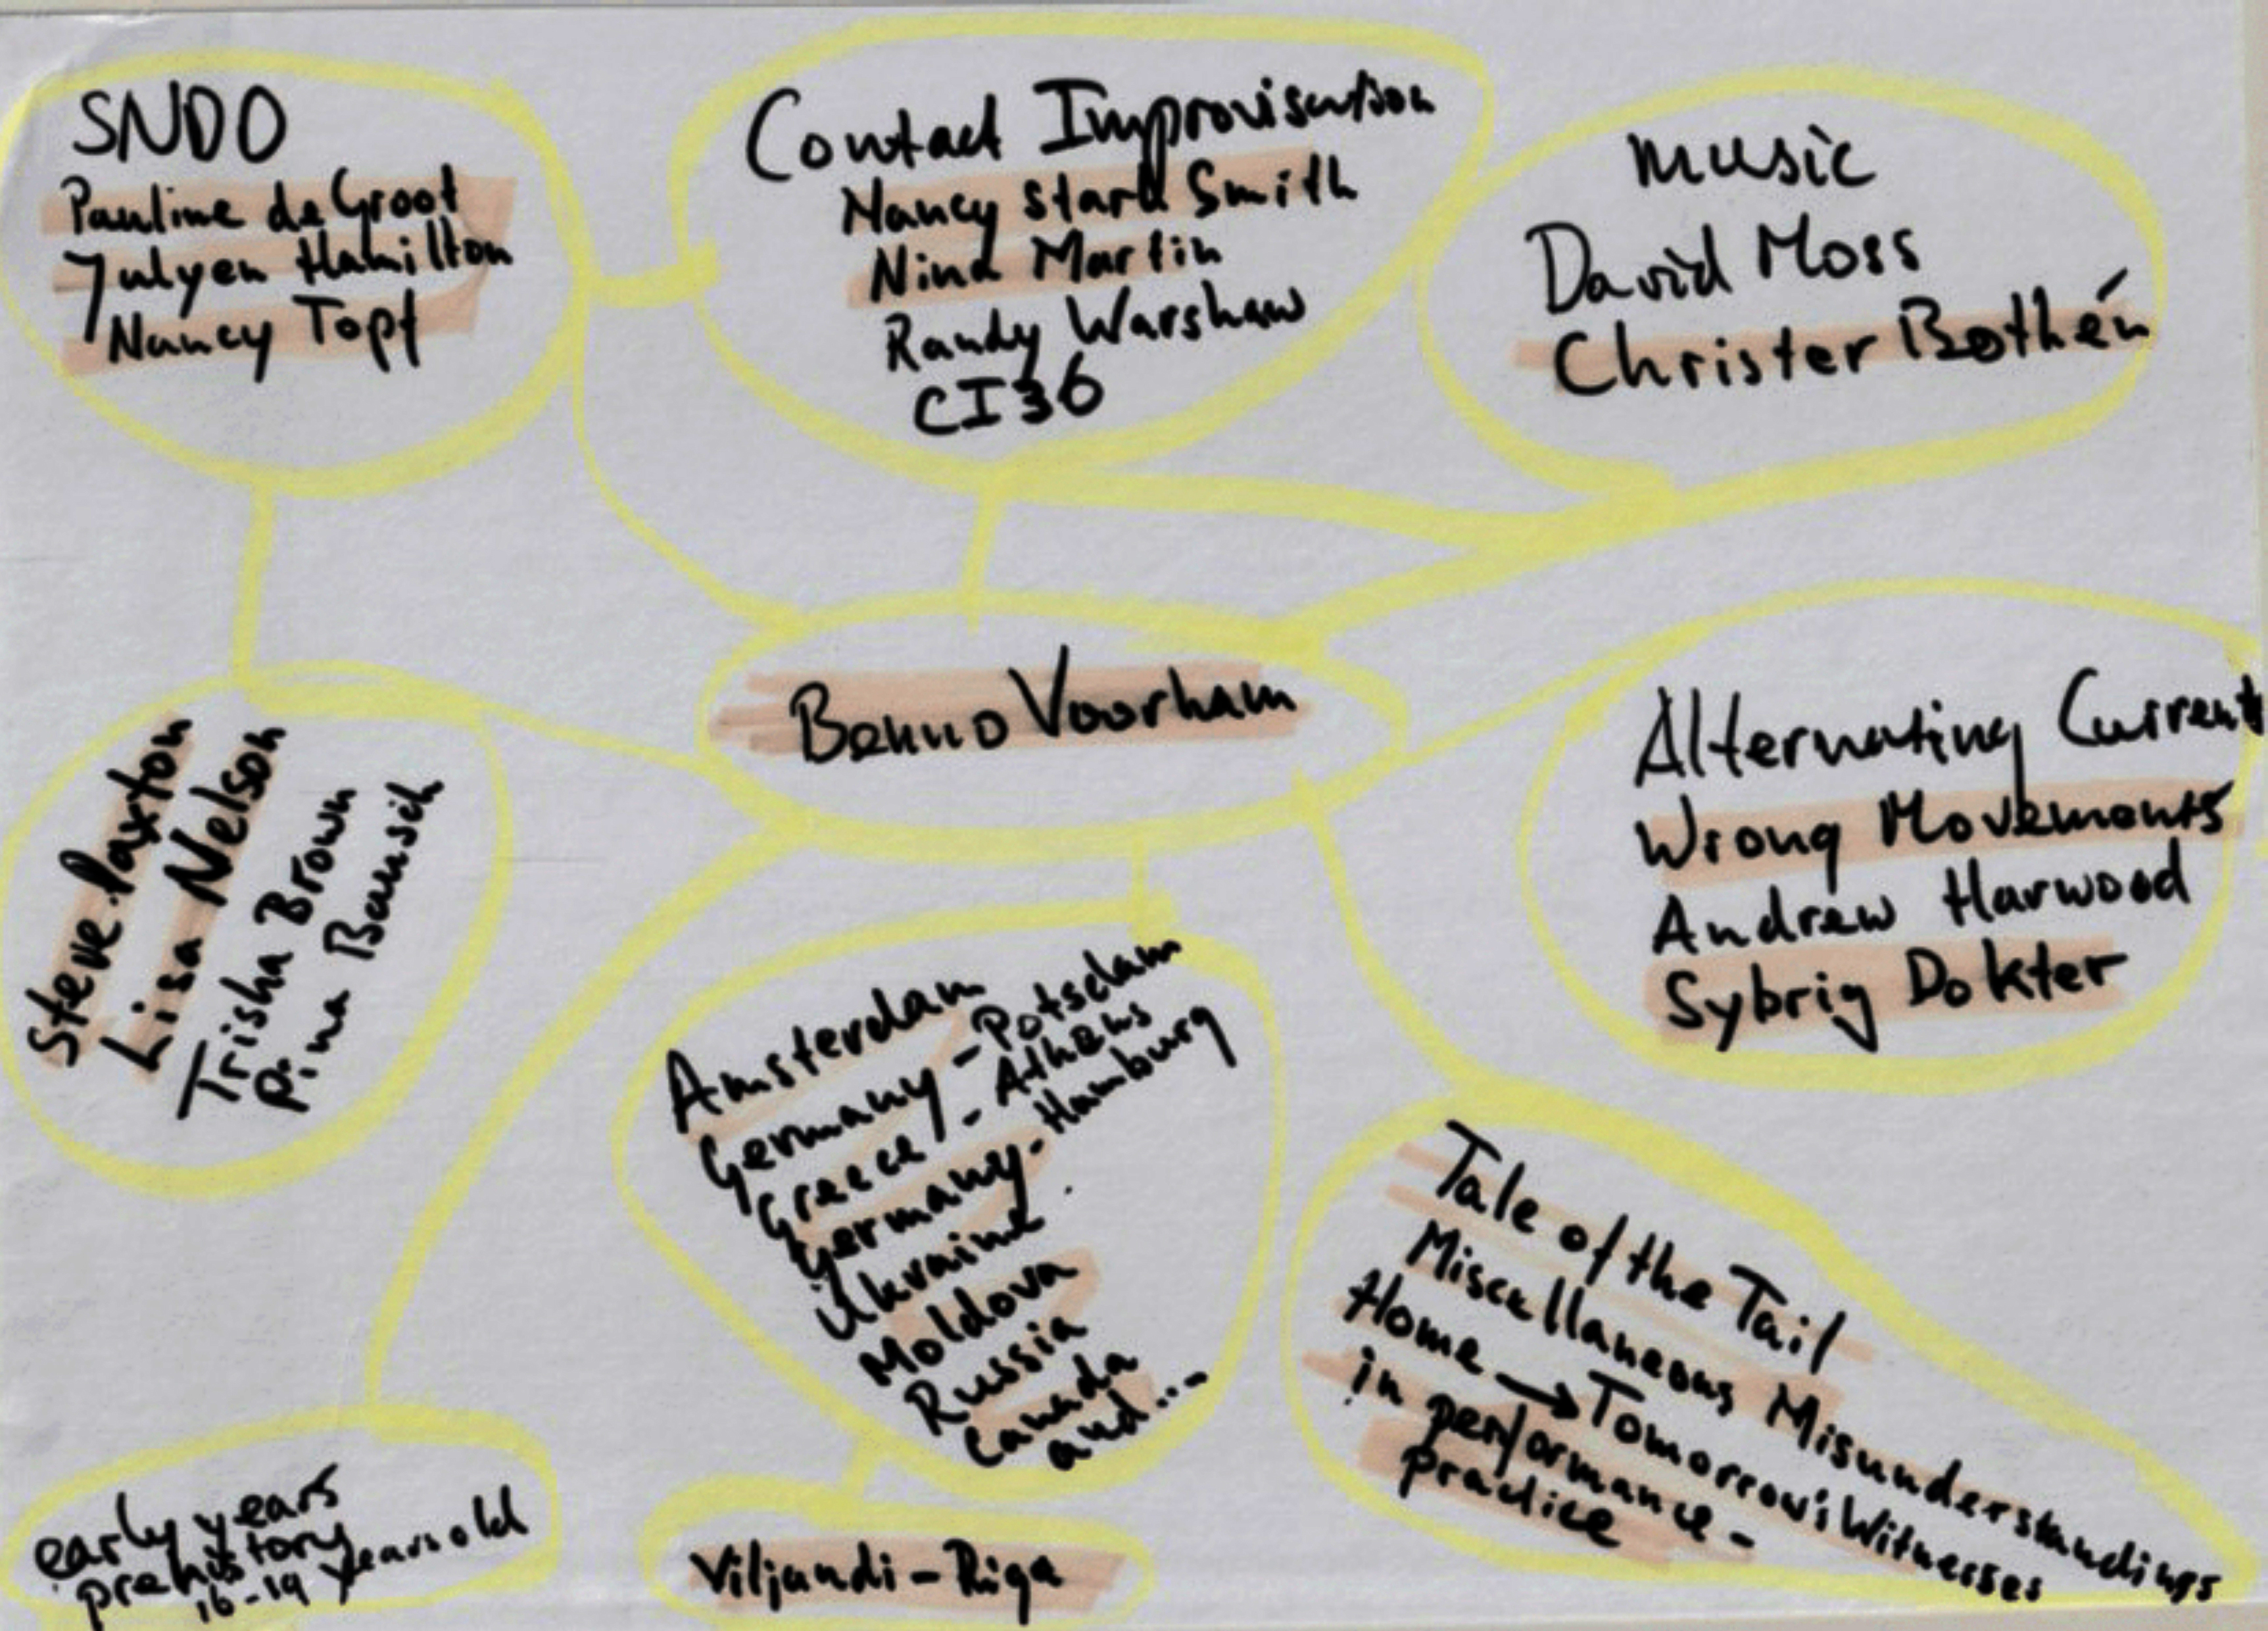 SNDO
Pauline de Groot
Julyen Hamilton
Nancy Topf
Contact Improvisation
Nancy Stark Smith
Nina Martin
Randy Warshaw
CI36
music
David Moss
Christer Bothén
Benno Voorham
Steve Paxton
Lisa Nelson
Trisha Brown
Pina Bausch
Alternating Current
Wrong Movements
Andrew Harwood
Sybrig Dokter
Amsterdam
Germany - Potsdam
Greece - Athens
Germany - Hamburg
Ukraine
Moldova
Russia
Canada
and...
Tale of the Tail
Miscellaneous Misunderstandings
Home → Tomorrow; Witnesses
in performance -
practice
early years
prehistory
16-19 years old
Viljandi - Riga